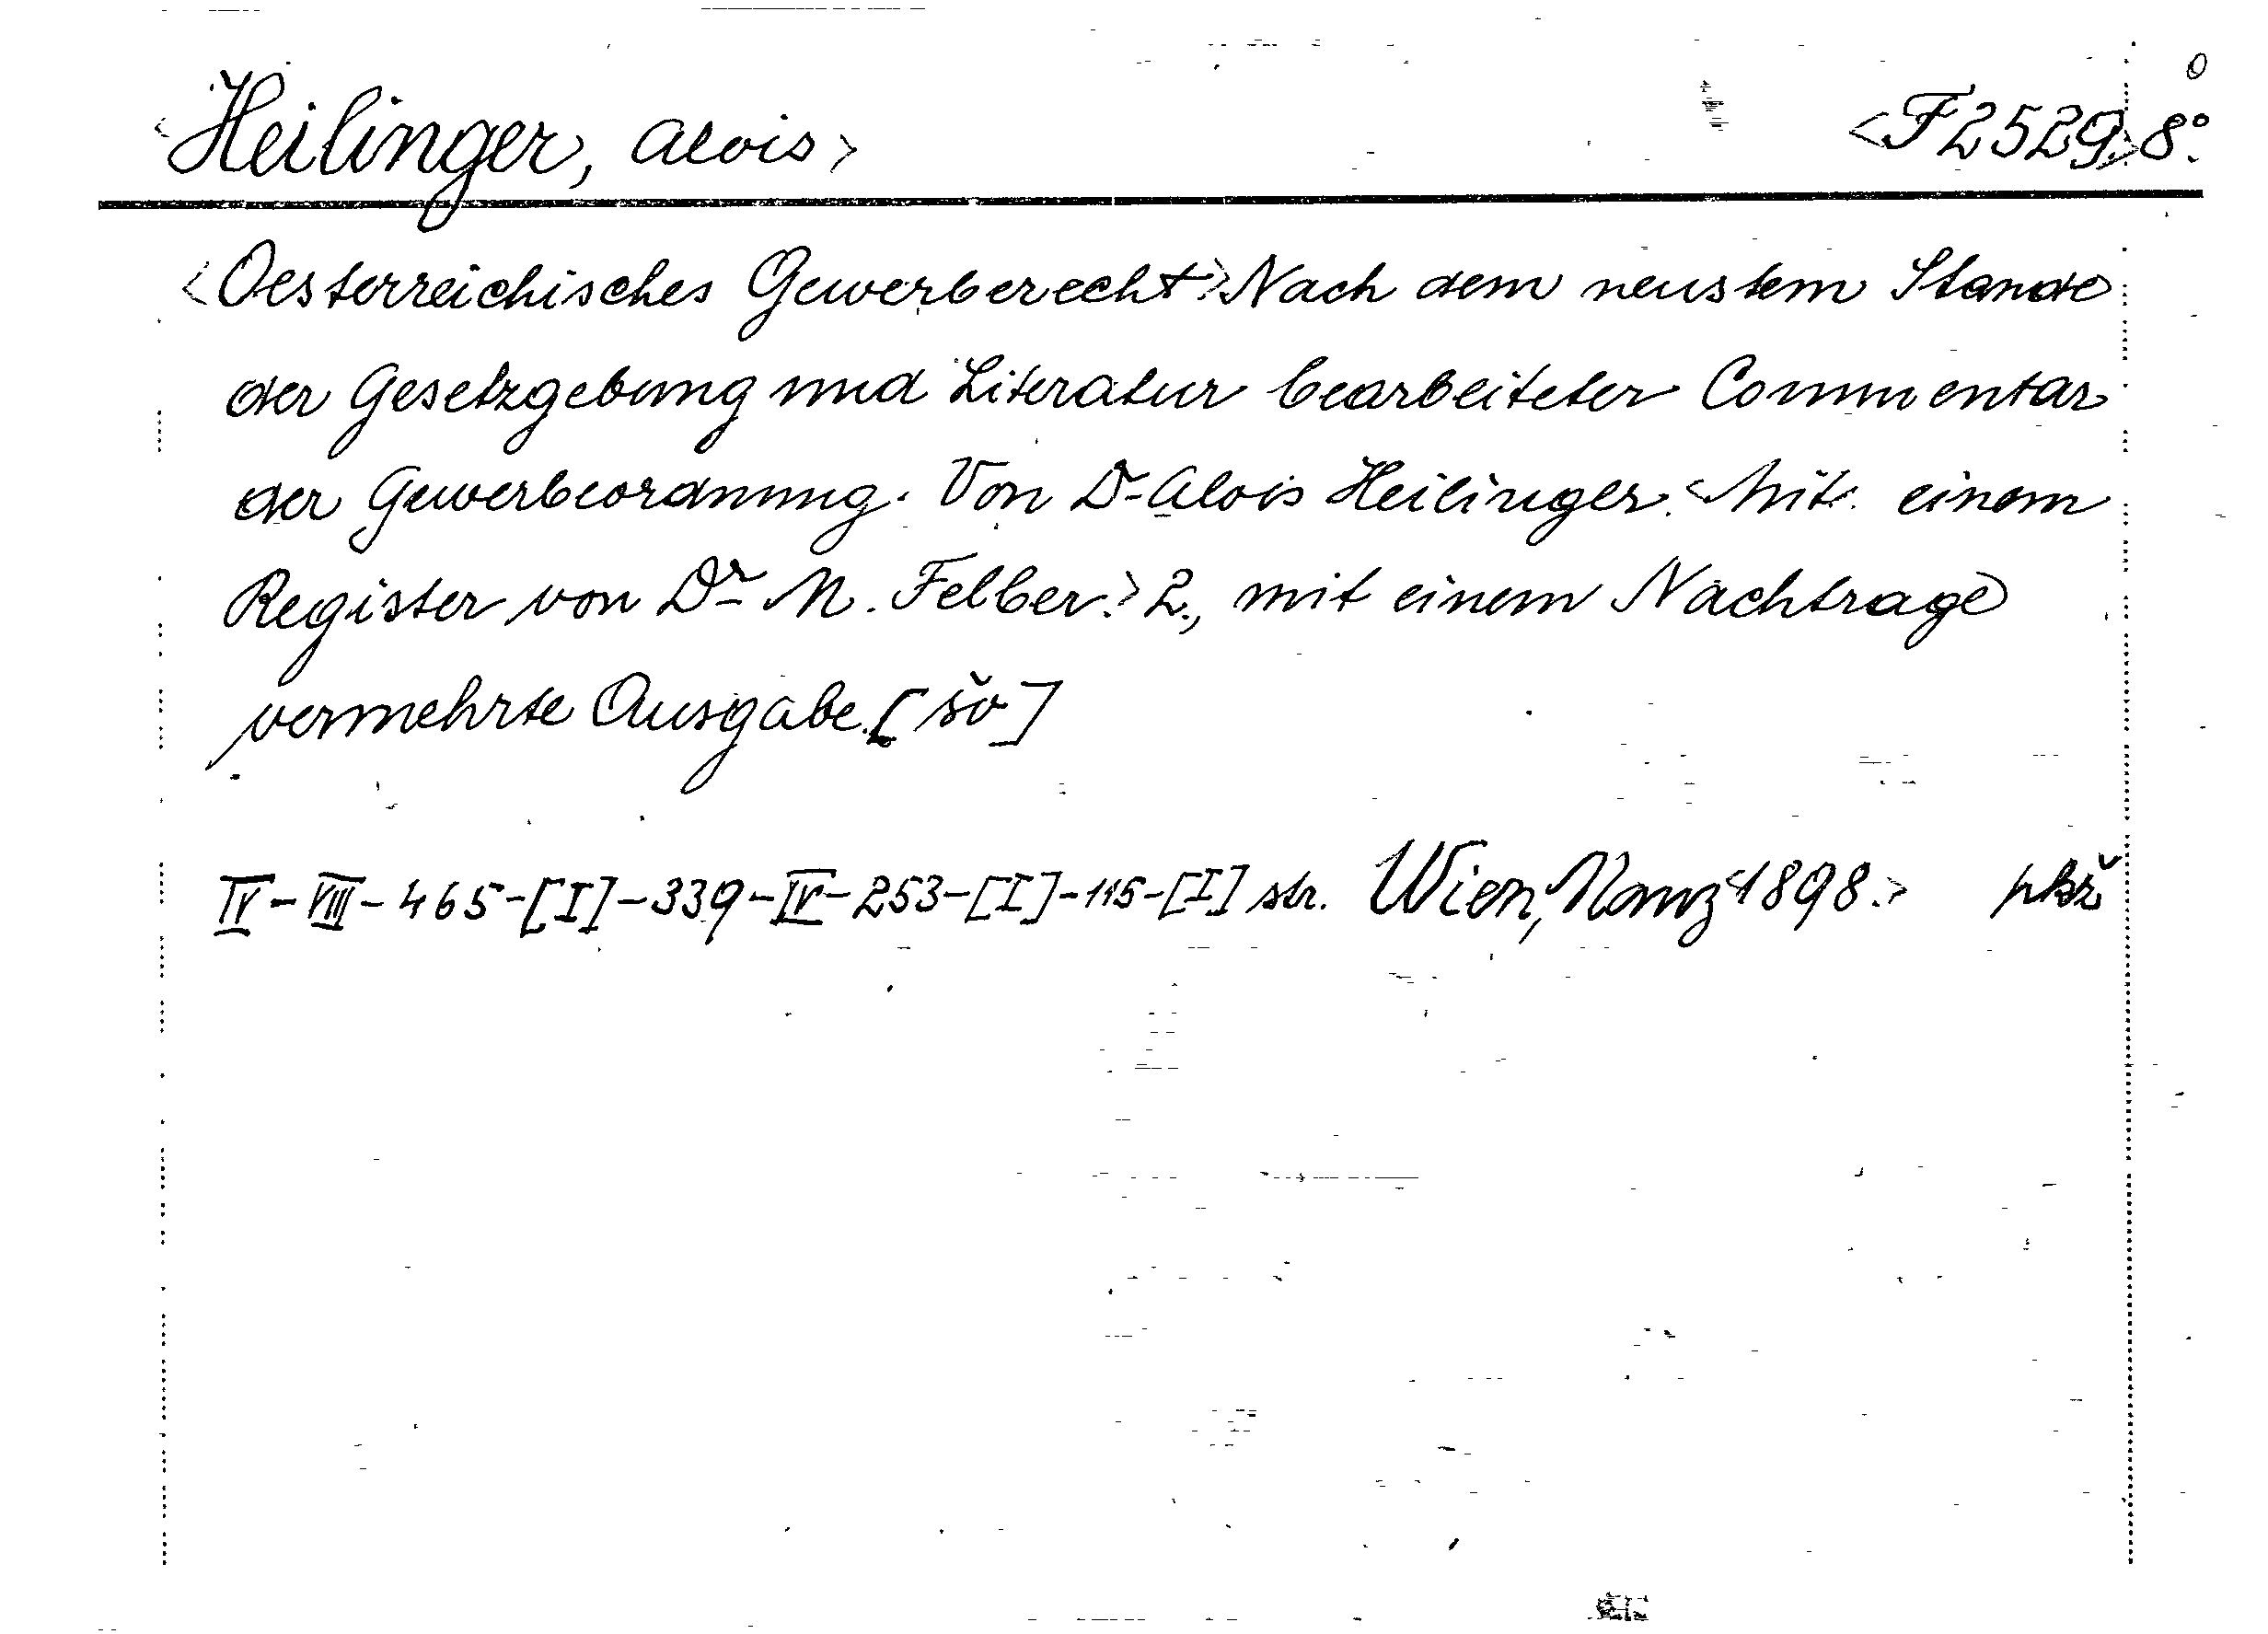 <Heilinger, Alois> <F 2529.> 8°.
<Oesterreichisches Gewerberecht.> Nach dem neustem Stande
der Gesetzgebung und Literatur bearbeiteter Commentar
der Gewerbeordnung. Von Dr Alois Heilinger. <Mit einem
Register von Dr M. Felber.> 2., mit einem Nachtrage
vermehrte Ausgabe. [šv]
IV-VIII-465-[I]-339-IV-253-[I]-115-[I] str. Wien, Manz <1898.>